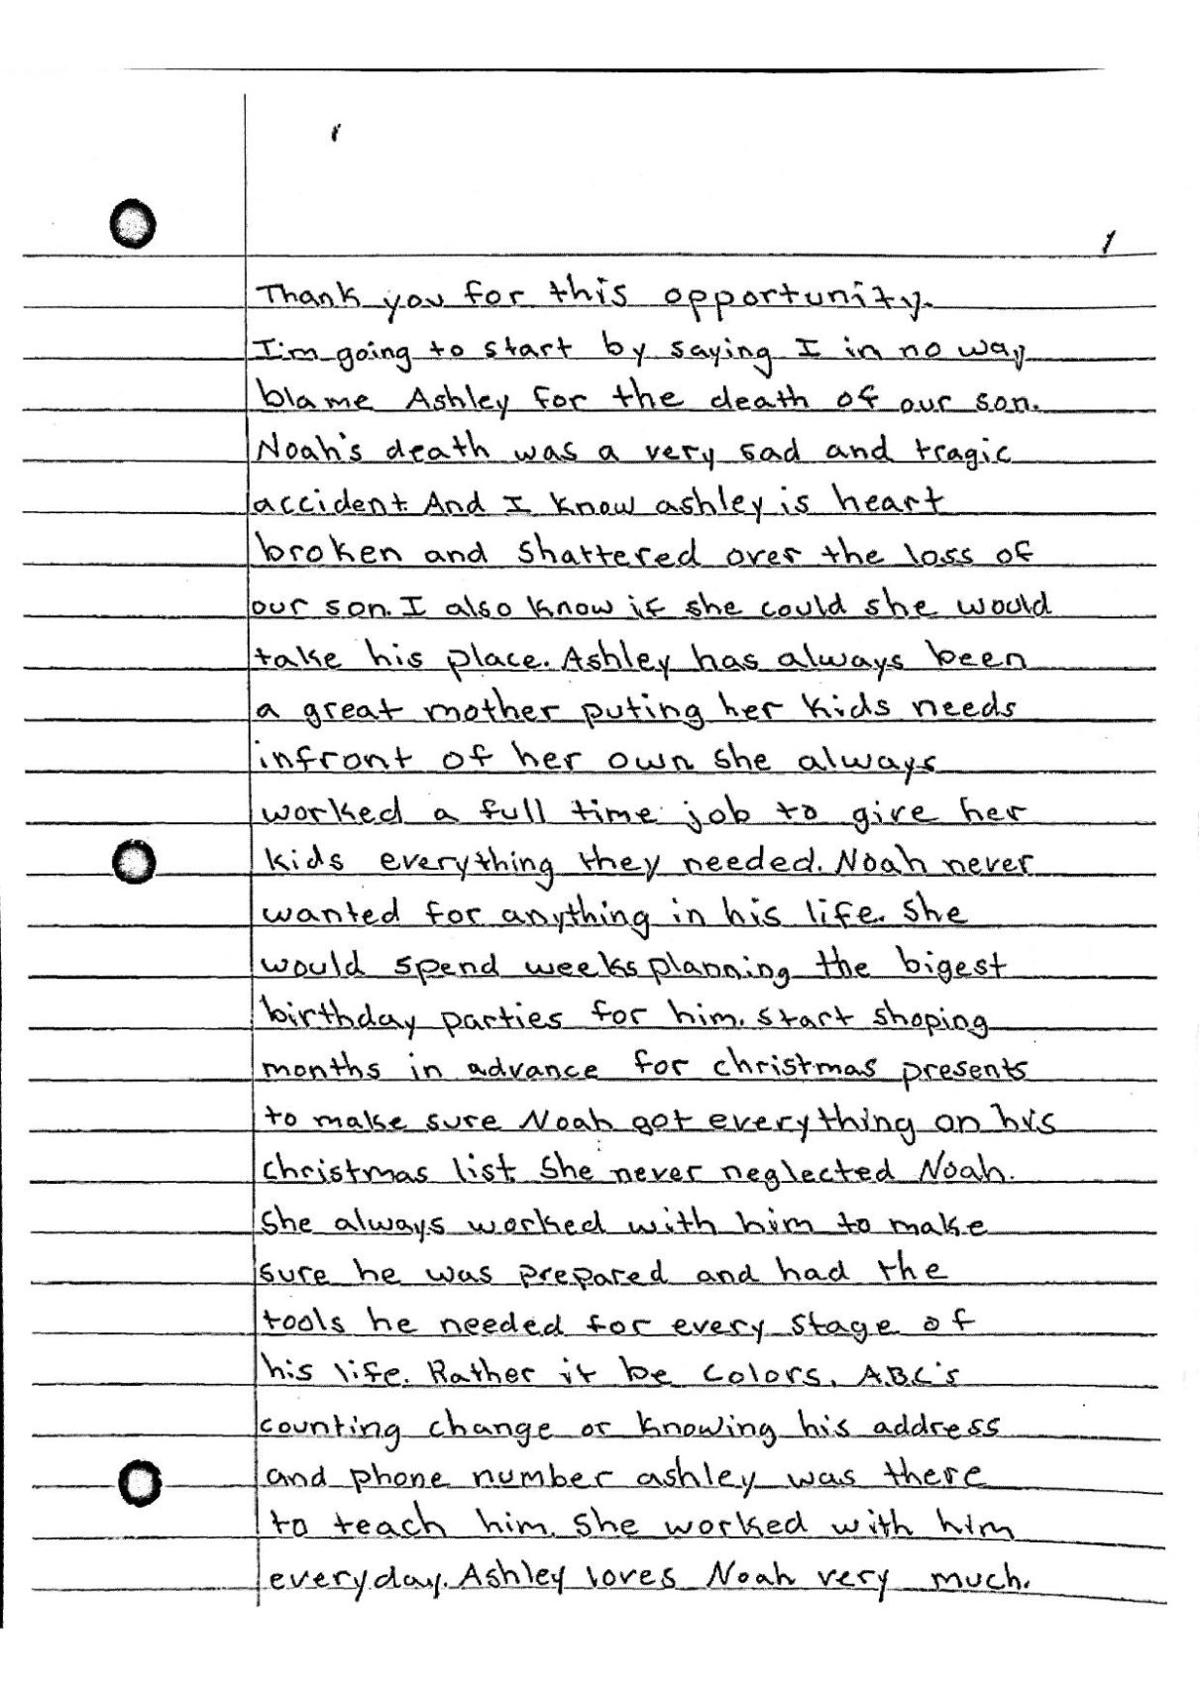 1
Thank you for this opportunity.
I'm going to start by saying I in no way
blame Ashley for the death of our son.
Noah's death was a very sad and tragic
accident. And I know ashley is heart
broken and shattered over the loss of
our son. I also know if she could she would
take his place. Ashley has always been
a great mother puting her kids needs
infront of her own she always
worked a full time job to give her
kids everything they needed. Noah never
wanted for anything in his life. She
would spend weeks planning the bigest
birthday parties for him. start shoping
months in advance for christmas presents
to make sure Noah got everything on his
christmas list. She never neglected Noah.
She always worked with him to make
sure he was prepared and had the
tools he needed for every stage of
his life. Rather it be colors, ABC's
counting change or knowing his address
and phone number ashley was there
to teach him. She worked with him
everyday. Ashley loves Noah very much.